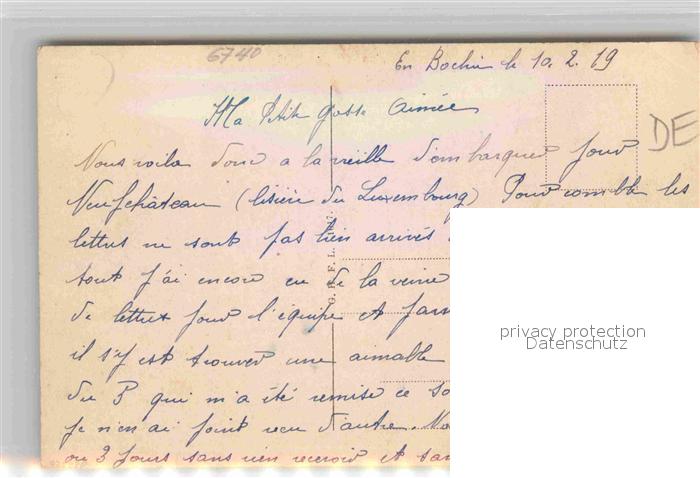 6740
En Bochie le 10.2.19
Ma Petite gosse Aimée
DE
Nous voila donc a la veille d'embarquer pour
Neufchâteau (lisière du Luxembourg) Pour comble les
lettres ne sont pas bien arrivés
tout j'ai encore eu de la veine
de lettres pour l'équipe et parm
il s'y est trouver une aimable
du 3 qui m'a été remise ce so
Je n'en ai point reçu d'autre. No
ou 3 jours sans rien recevoir et san
privacy protection
Datenschutz